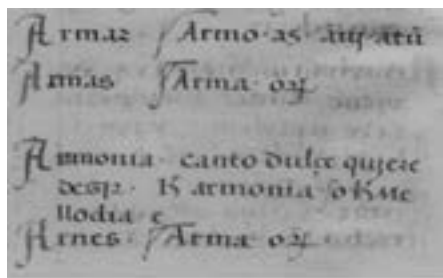 Armar. Armo. as. aui. atū
Armas Arma. oꝝ
Armonia. canto dulçe quiere
dezir. K armonia. o K me
llodia. e
Arnes. Arma. oꝝ